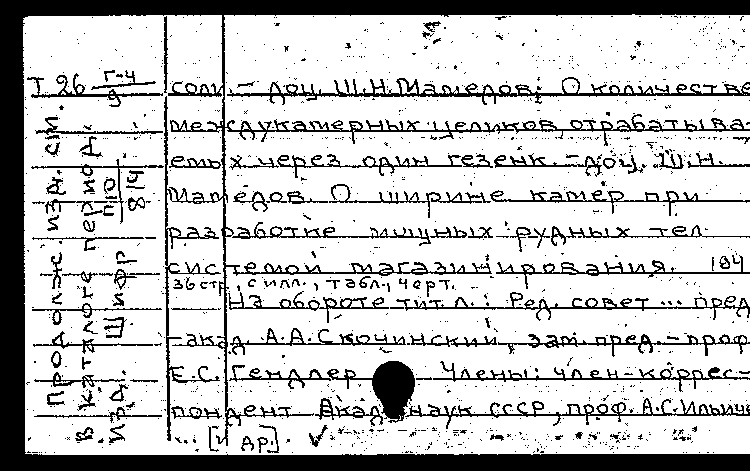 Т 26 Г-4/9 соли. - Доц. Ш.Н.Мамедов: О количестве
междукамерных целиков, отрабатыва-
емых через один гезенк. - Доц. Ш.Н.
Мамедов. О ширине камер при
разработке мощных рудных тел
системой магазинирования. 194
36 стр., с илл., табл., черт.
На обороте тит. л.: Ред. совет ... пред.
- акад. А.А.Скочинский, зам. пред. - проф.
Е.С. Гендлер Члены: член-коррес-
пондент Акад. наук СССР, проф. А.С.Ильиче
... [и др].
Продолж. изд. см.
в каталоге период.
изд. Шифр П10/814